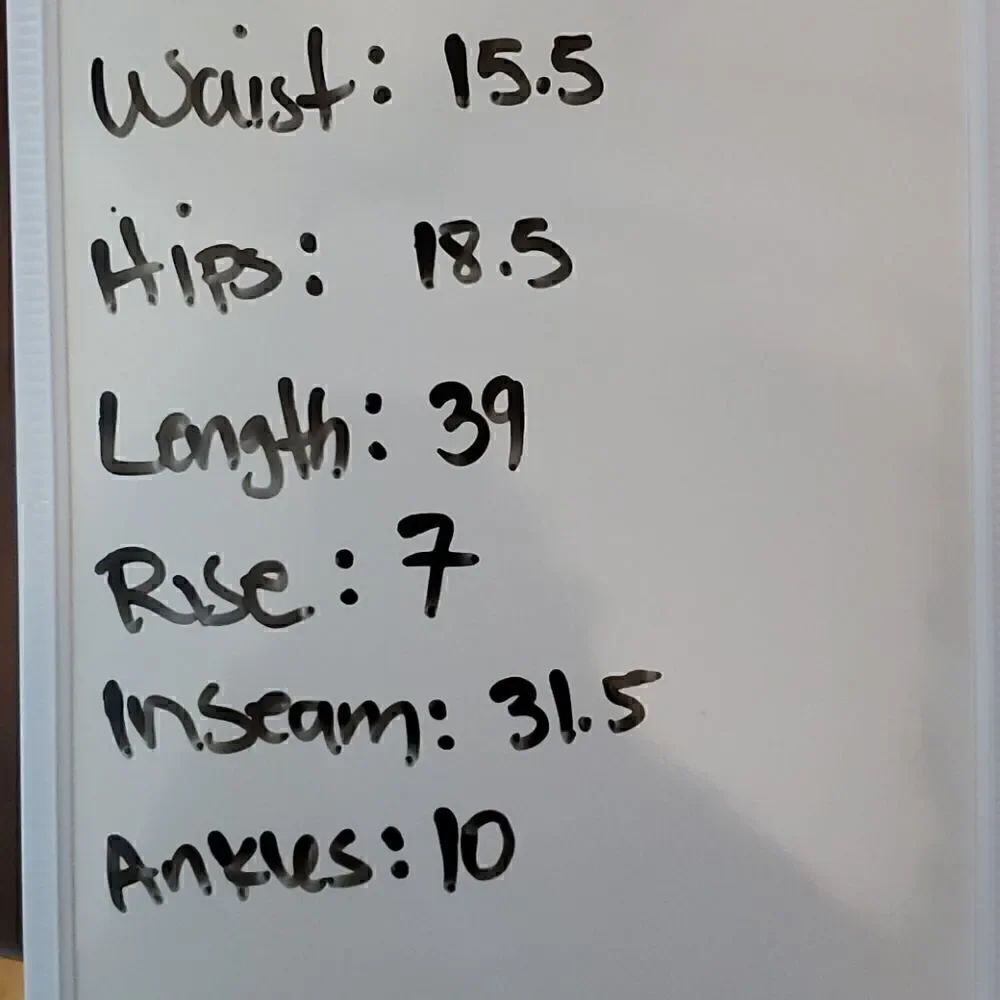 Waist: 15.5
Hips: 18.5
Length: 39
Rise: 7
Inseam: 31.5
Ankles: 10